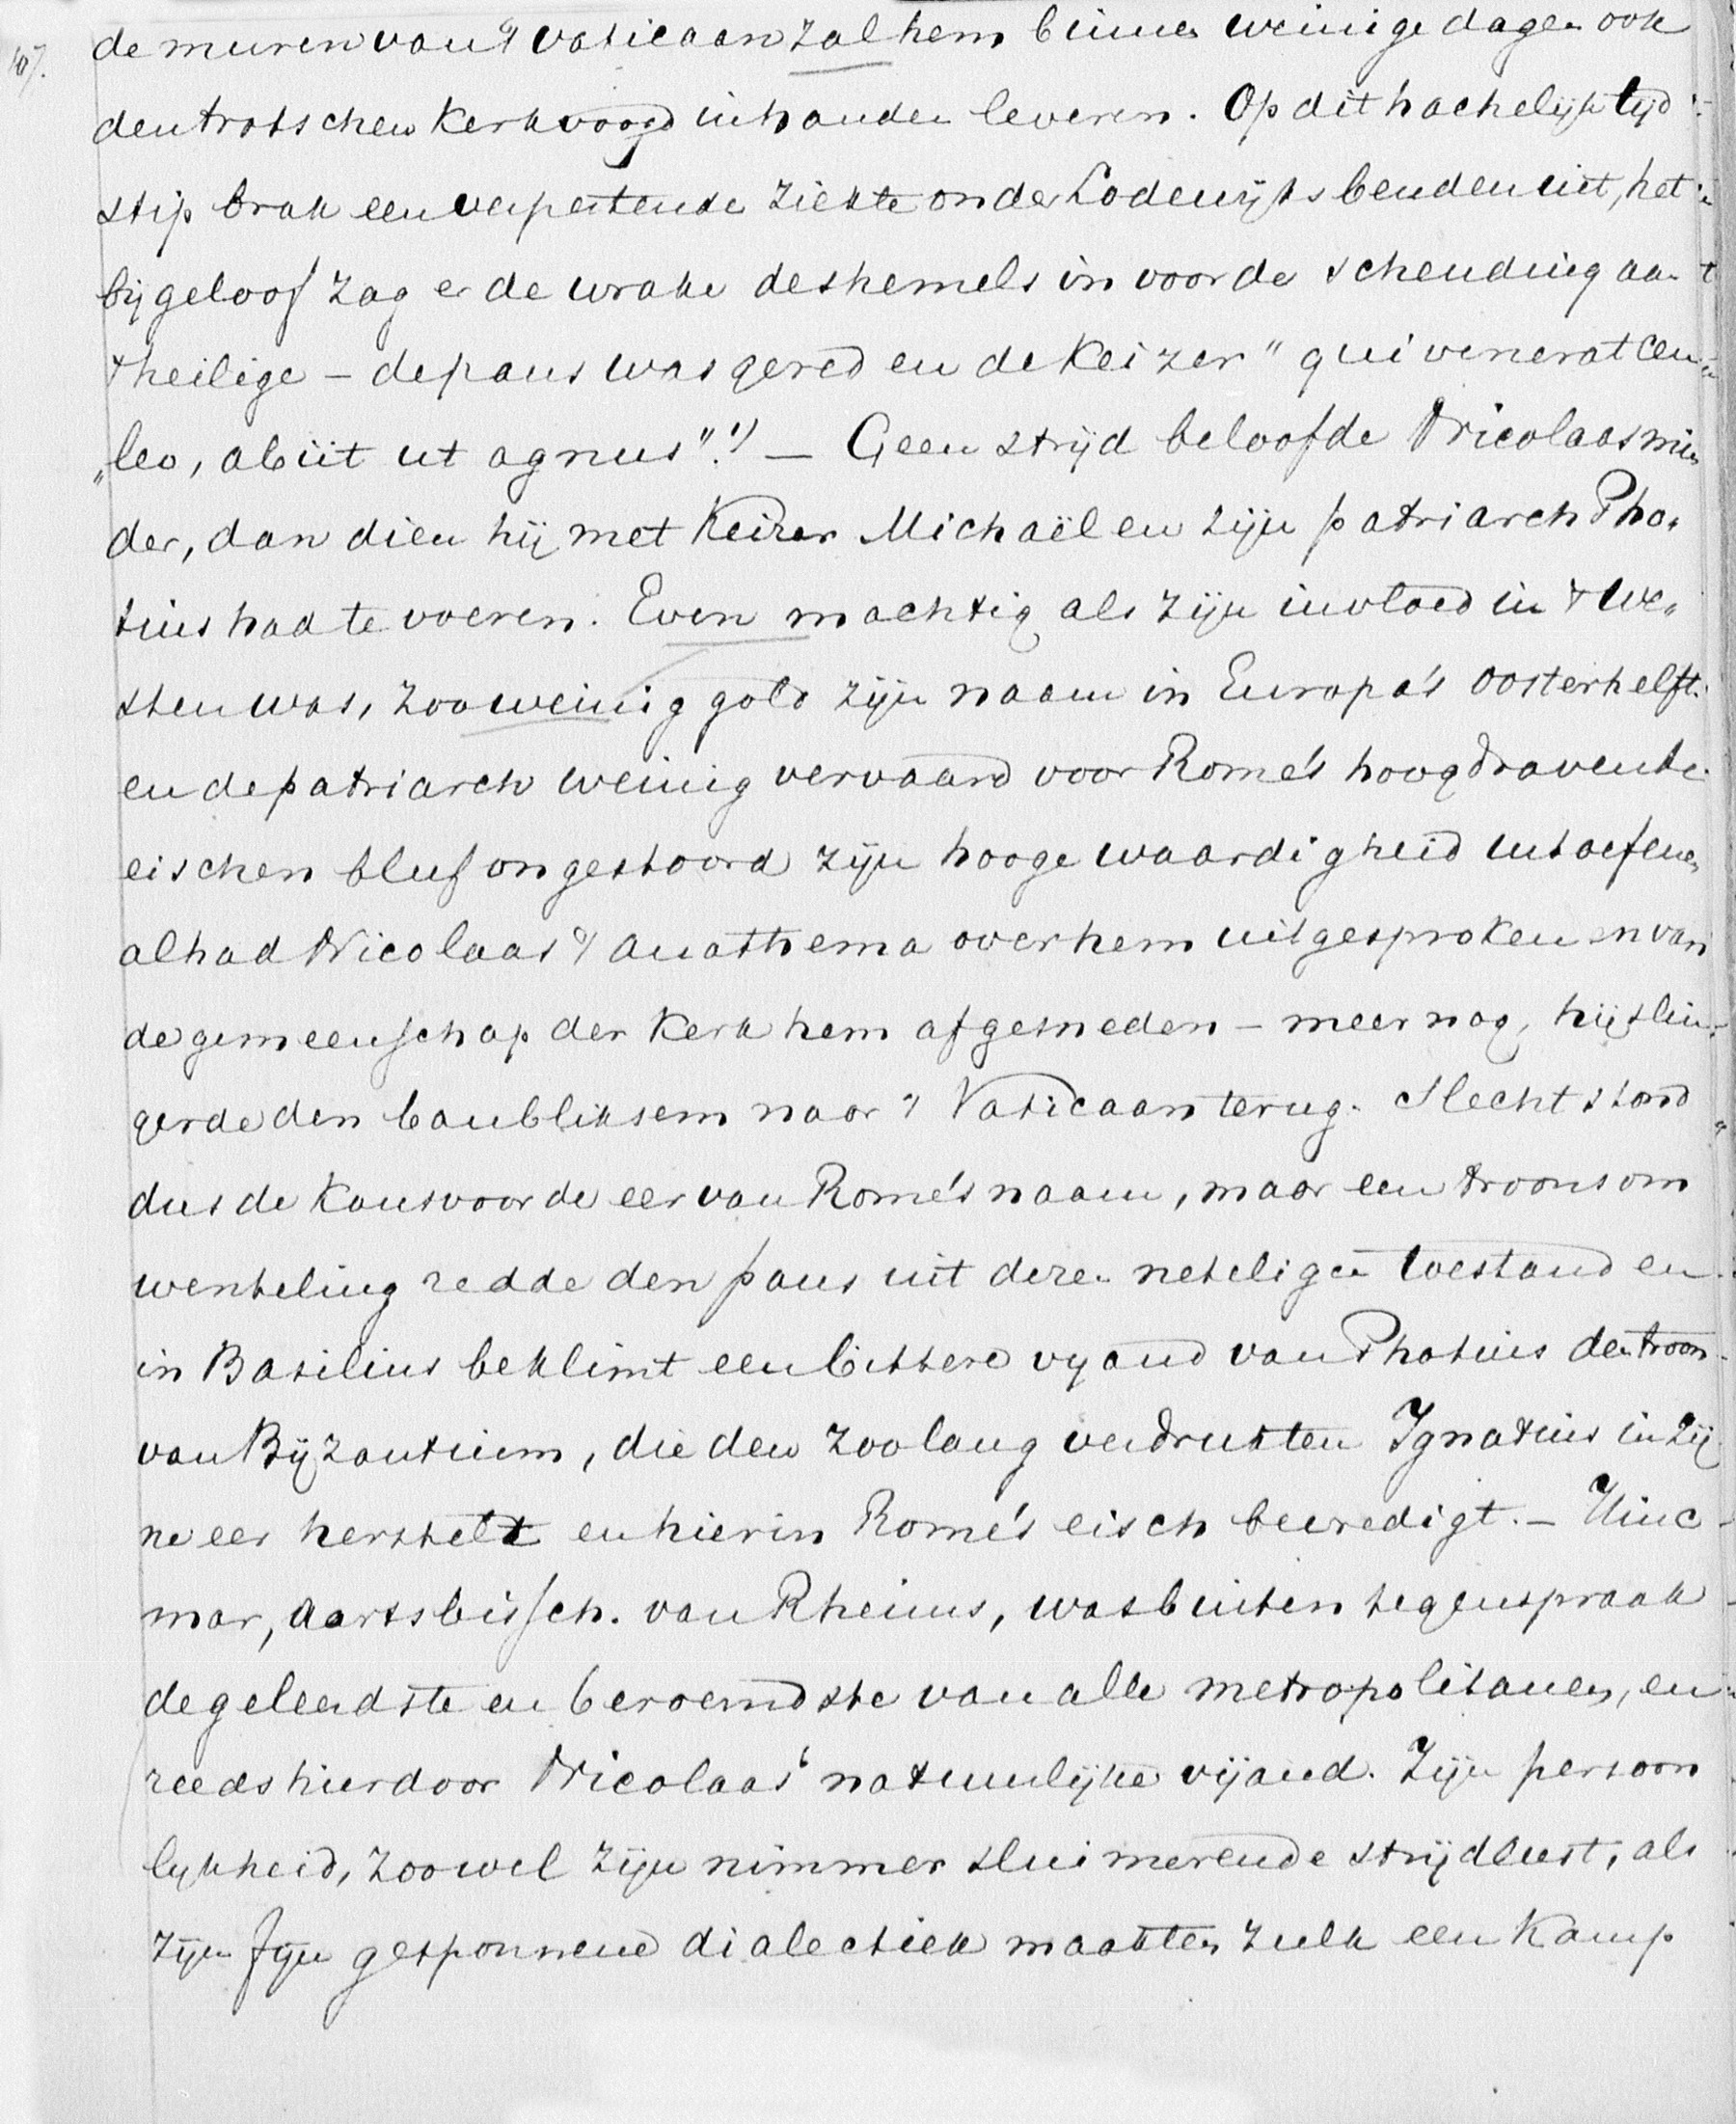 107.
de muren van 't vaticaan zal hem binnen weinige dagen ook
den trotschen kerkvoogd in handen leveren. Op dit hachelijk tijd„
stip brak een verpestende ziekte onder Lodewijks benden uit, het
bijgeloof zag er de wrake des hemels in voor de schending aan 't
heilige – de paus was gered en de Keizer "qui venerat ceu
„leo, abiit ut agnus".¹) – Geen strijd beloofde Nicolaas min
der, dan dien hij met Keizer Michaël en zijn patriarch Pho„
tius had te voeren. Even machtig als zijn invloed in 't We„
sten was, zoo weinig gold zijn naam in Europa's oosterhelft.
en de patriarch weinig vervaard voor Rome's hoogdravende
eischen bleef ongestoord zijn hooge waardigheid uitoefenen,
al had Nicolaas 't anathema over hem uitgesproken en van
de gemeenschap der Kerk hem afgesneden – meer nog, hij slin„
gerde den banbliksem naar 't Vaticaan terug. Slecht stond
dus de kans voor de eer van Rome's naam, maar een troonsom
wenteling redde den paus uit dezen neteligen toestand en
in Basilius beklimt een bittere vyand van Photius den troon
van Bijzantium, die den zoolang verdrukten Ignatius in zij
ne eer herstelt en hierin Rome's eisch bevredigt. – Hinc
mar, aartsbissch. van Rheims, was buiten tegenspraak
de geleerdste en beroemdste van alle metropolitanen, en
reeds hierdoor Nicolaas' natuurlijke vijand. Zijn persoon
lykheid, zoowel zijn nimmer sluimerende strijdlust, als
zijn fijn gesponnene dialectiek maakten zulk een kamp